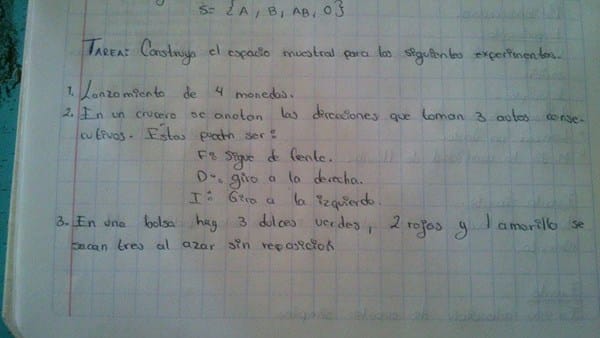 S= {A, B, AB, O}
TAREA: Construya el espacio muestral para los siguientes experimentos.
1. Lanzamiento de 4 monedas.
2. En un crucero se anotan las direcciones que toman 3 autos conse-
cutivos. Estas pueden ser:
F: Sigue de frente.
D: giro a la derecha.
I: Giro a la izquierda.
3. En una bolsa hay 3 dulces verdes, 2 rojos y 1 amarillo se
sacan tres al azar sin reposición